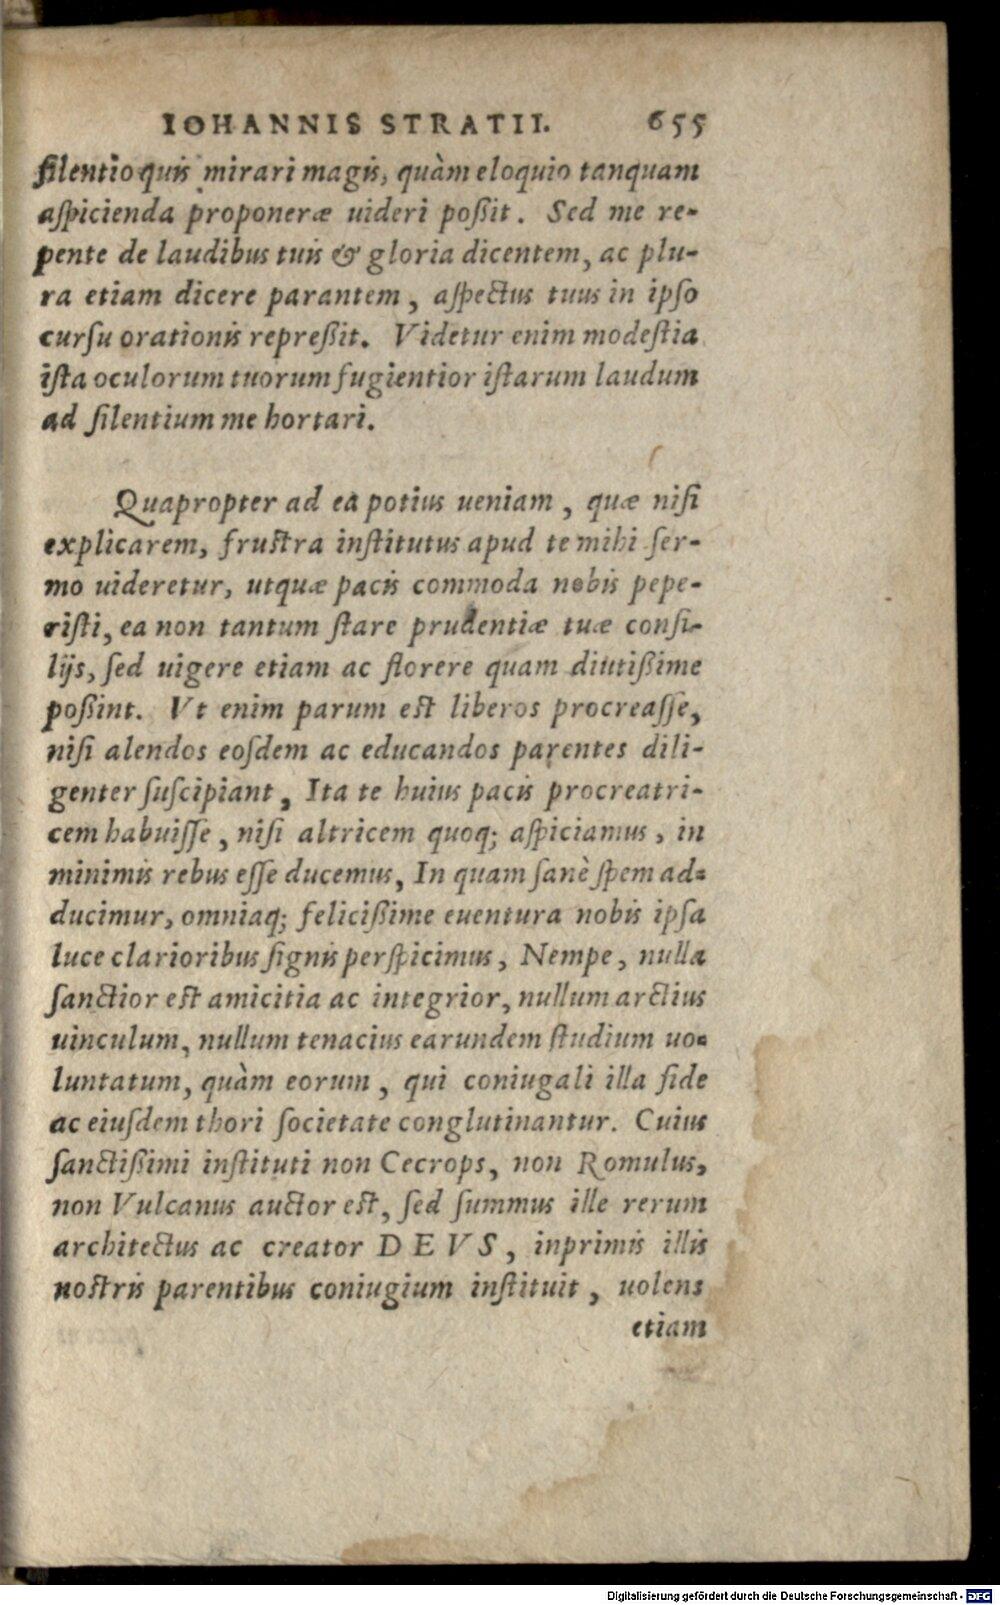 IOHANNIS STRATII. 655
ſilentio quis mirari magis, quàm eloquio tanquam
aſpicienda proponeræ uideri poßit. Sed me re-
pente de laudibus tuis & gloria dicentem, ac plu-
ra etiam dicere parantem, aſpectus tuus in ipſo
curſu orationis repreßit. Videtur enim modeſtia
iſta oculorum tuorum fugientior iſtarum laudum
ad ſilentium me hortari.
Quapropter ad ea potius ueniam, quæ niſi
explicarem, fruſtra inſtitutus apud te mihi ſer-
mo uideretur, utquæ pacis commoda nobis pepe-
riſti, ea non tantum ſtare prudentiæ tuæ conſi-
lijs, ſed uigere etiam ac florere quam diutißime
poßint. Vt enim parum eſt liberos procreaſſe,
niſi alendos eoſdem ac educandos parentes dili-
genter ſuſcipiant, Ita te huius pacis procreatri-
cem habuiſſe, niſi altricem quoq; aſpiciamus, in
minimis rebus eſſe ducemus, In quam ſanè ſpem ad-
ducimur, omniaq; felicißime euentura nobis ipſa
luce clarioribus ſignis perſpicimus, Nempe, nulla
ſanctior eſt amicitia ac integrior, nullum arctius
uinculum, nullum tenacius earundem ſtudium uo-
luntatum, quàm eorum, qui coniugali illa fide
ac eiuſdem thori ſocietate conglutinantur. Cuius
ſanctißimi inſtituti non Cecrops, non Romulus,
non Vulcanus auctor eſt, ſed ſummus ille rerum
architectus ac creator DEVS, inprimis illis
noſtris parentibus coniugium inſtituit, uolens
etiam
Digitalisierung gefördert durch die Deutsche Forschungsgemeinschaft - DFG